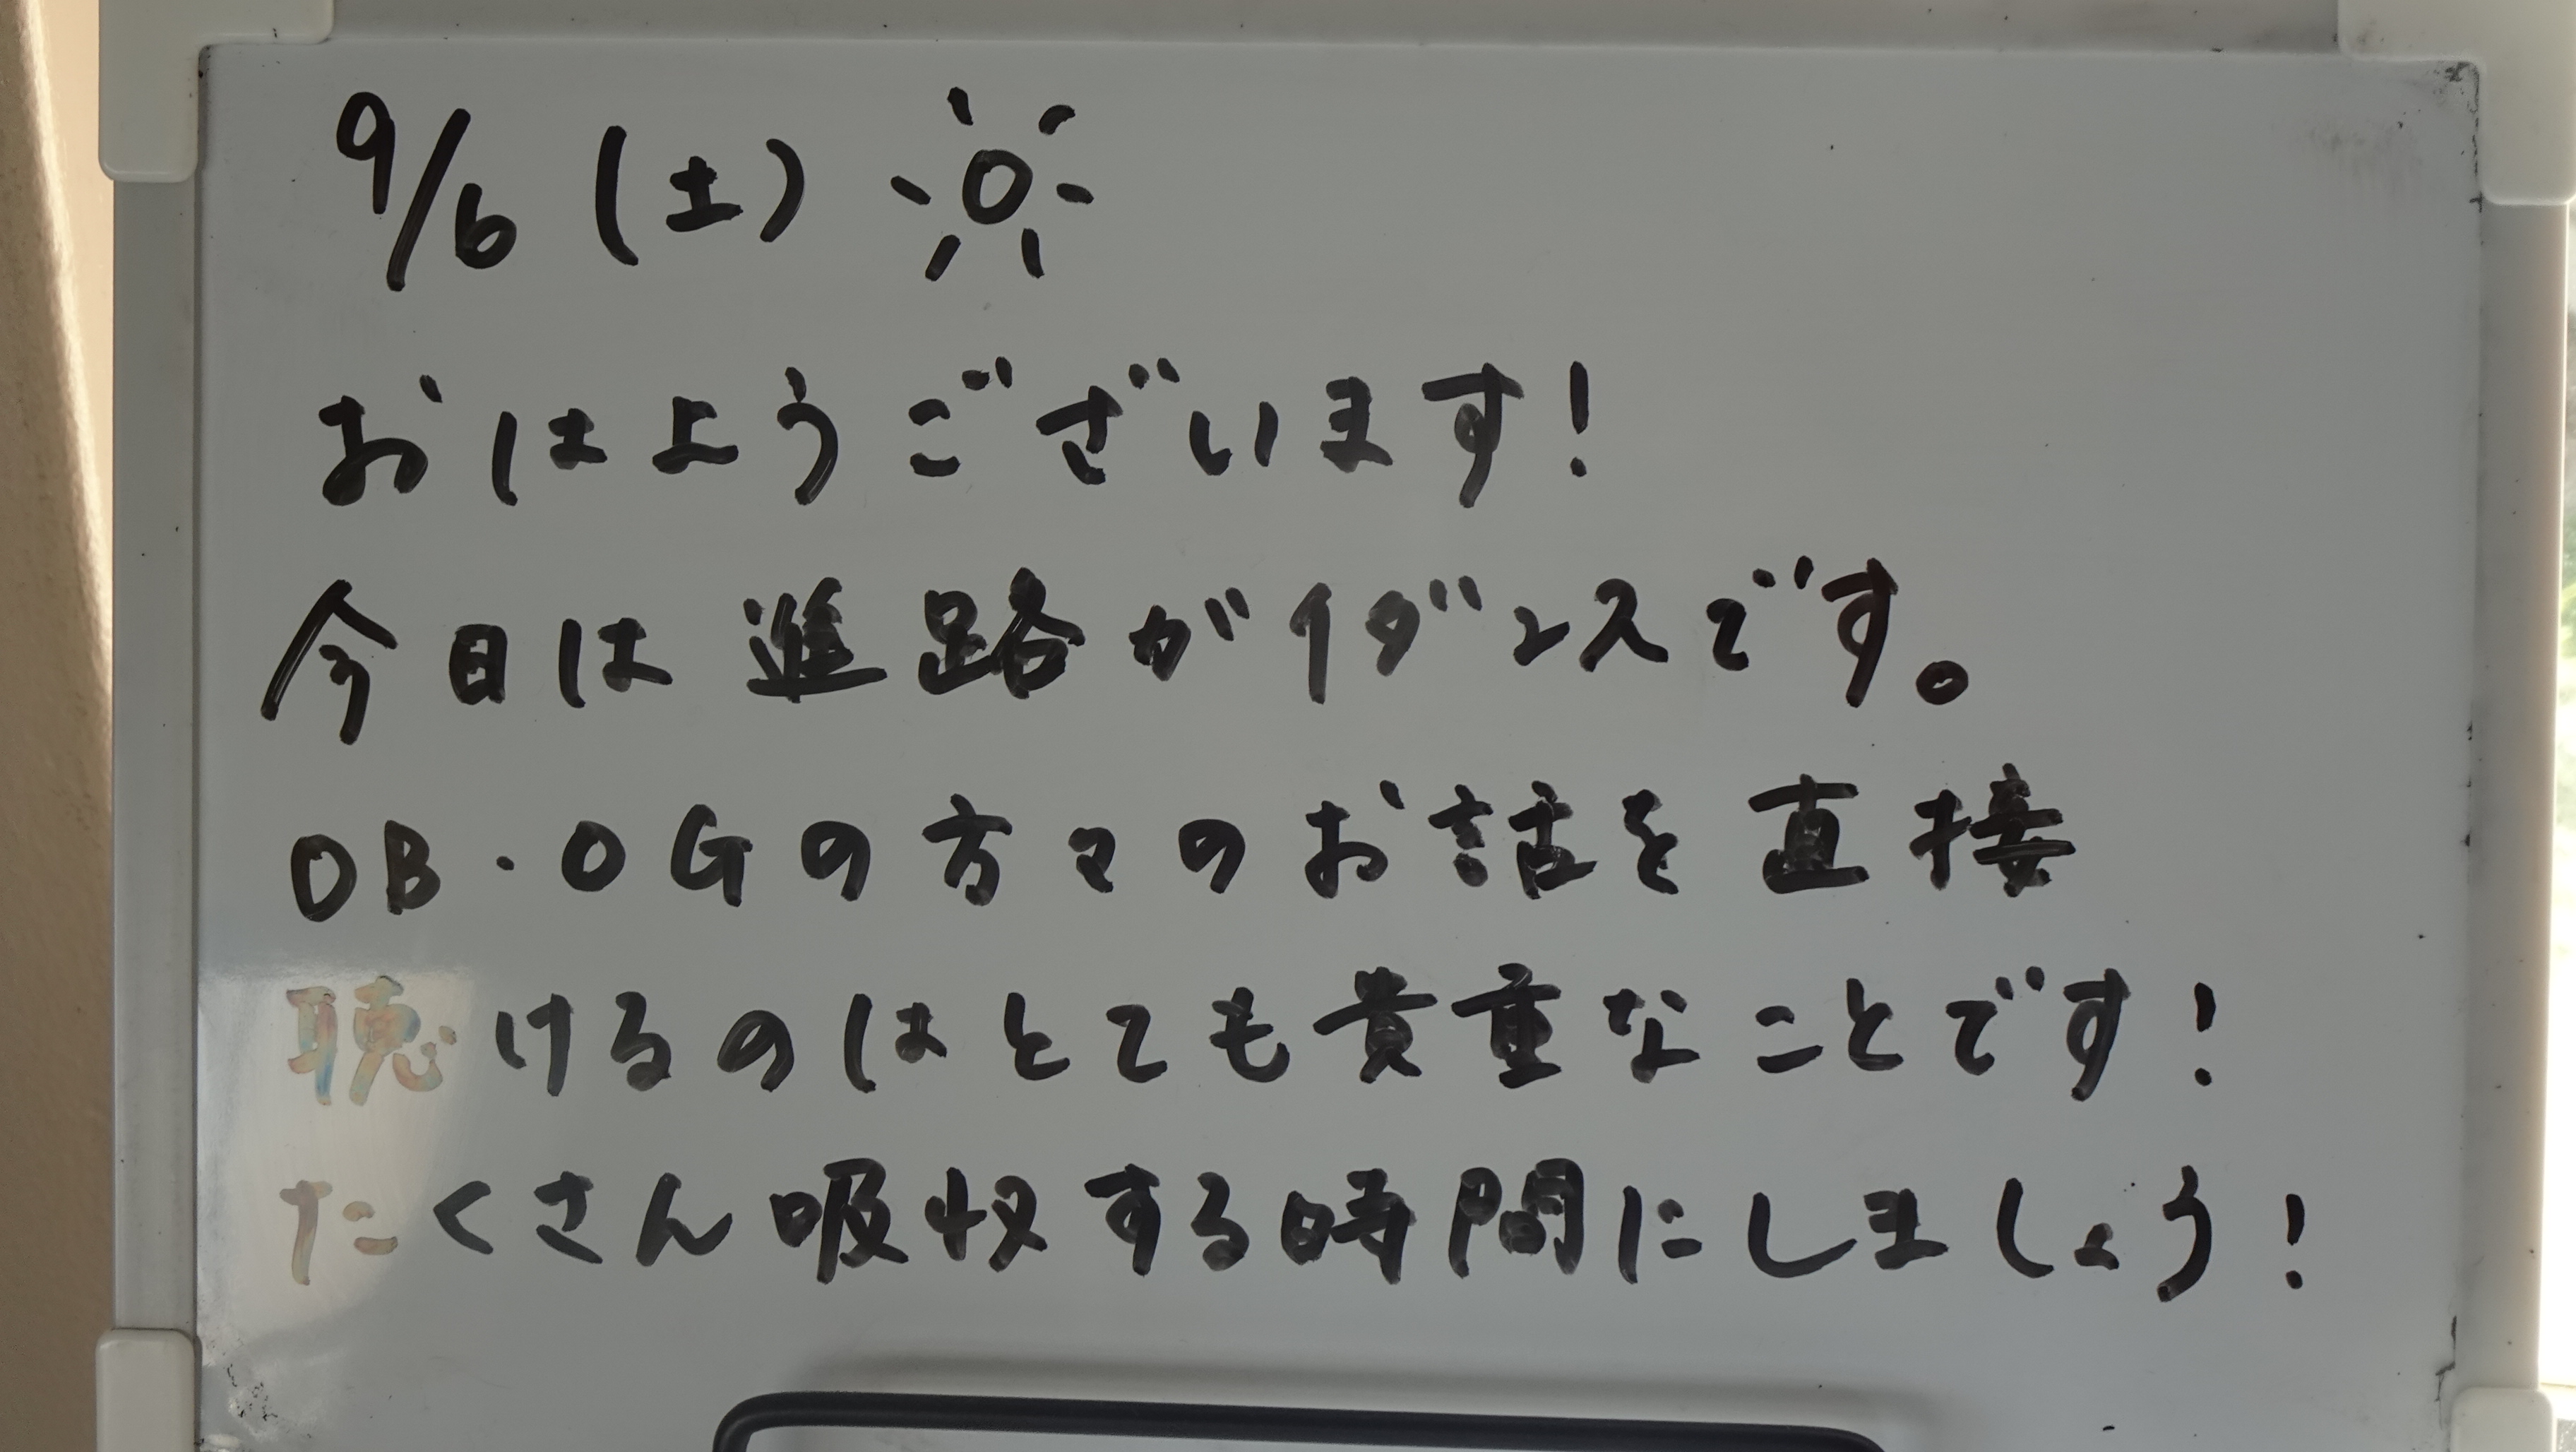 9/6 (土)
おはようございます!
今日は進路ガイダンスです。
OB・OGの方々のお話を直接
聴けるのはとても貴重なことです!
たくさん吸収する時間にしましょう!